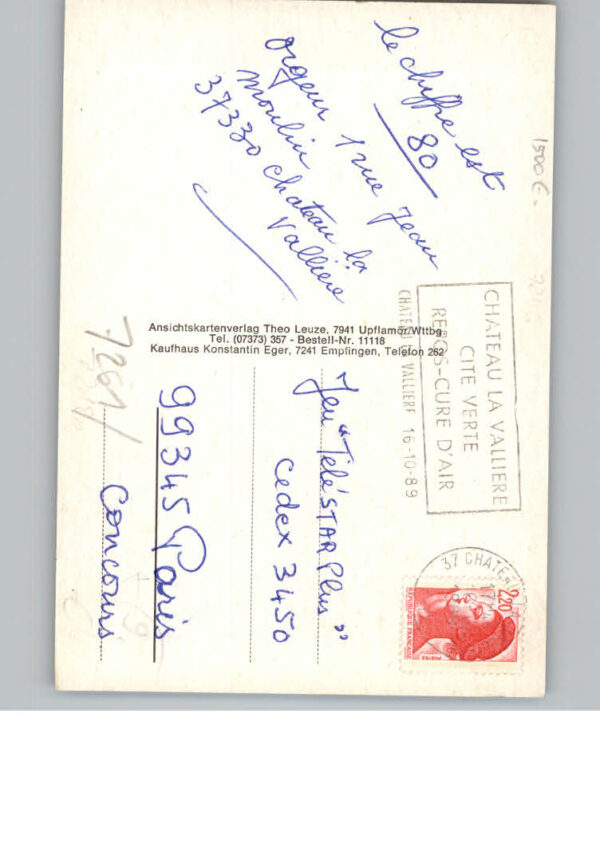 le chiffre est
80
orgeur 1 rue Jean
moulin
37330 chateau la
Valliere
1500 E.
CHATEAU LA VALLIERE
CITE VERTE
REPOS-CURE D'AIR
CHATEAU LA VALLIERE 16-10-89
37 CHATEAU
2,20
REPUBLIQUE FRANÇAISE
POSTES
Ansichtskartenverlag Theo Leuze, 7941 Upflamör/Wttbg
Tel. (07373) 357 - Bestell-Nr. 11118
Kaufhaus Konstantin Eger, 7241 Empfingen, Telefon 262
7261/
Jeu "TéléSTAR Plus"
Cedex 3450
99345 Paris
Concours